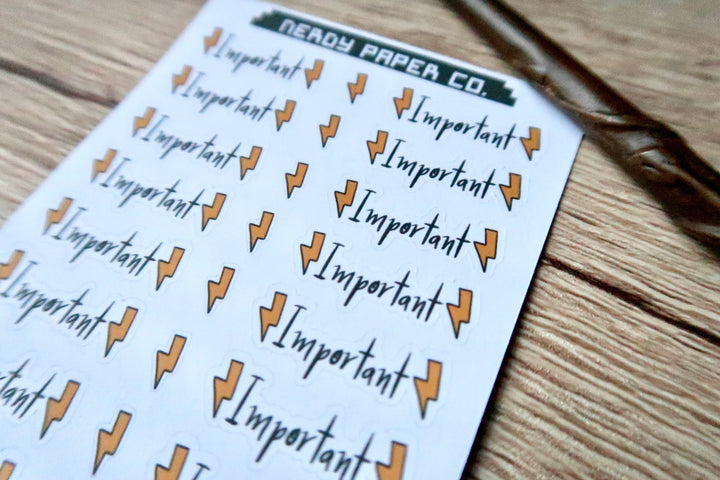 NERDY PAPER CO.
Important Important
Important Important
Important Important
Important Important
Important Important
Important Important
rtant